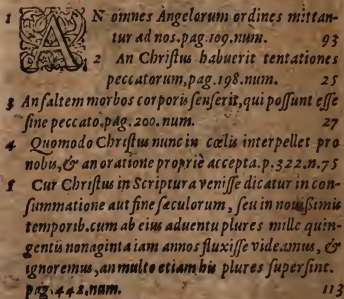 1 AN omnes Angelorum ordines mittan-
tur ad nos.pag.109.num. 93
2 An Christus habuerit tentationes
peccatorum,pag.198.num. 25
3 An saltem morbos corporis senserit,qui possunt esse
sine peccato,pag.200.num. 27
4 Quomodo Christus nunc in cœlis interpellet pro
nobis,& an oratione propriè accepta.p.322.n.75
5 Cur Christus in Scriptura venisse dicatur in con-
summatione aut fine sæculorum, seu in nouissimis
temporib.cum ab eius aduentu plures mille quin-
gentis nonaginta iam annos fluxisse videamus, &
ignoremus,an multo etiam his plures supersint.
pag.442.num. 113